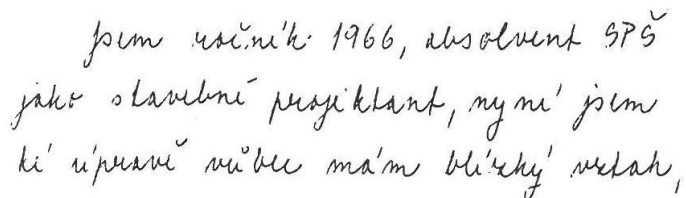 jsem ročník 1966, absolvent SPŠ
jako stavební projektant, nyní jsem
ké úpravě vůbec mám blízký vztah,